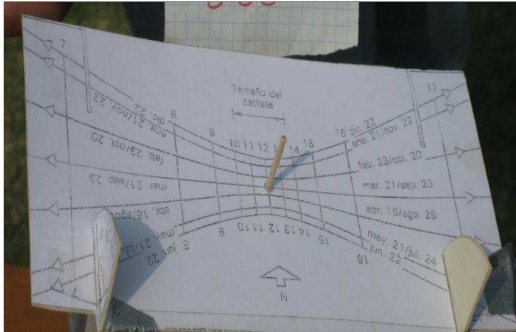 7
17
Tamaño del
cacilete
8 9 10 11 12 13 14 15 16
dic. 22
ene. 21/nov. 22
feb. 23/oct. 20
mar. 21/sep. 23
abr. 16/ago. 28
may. 21/jul. 24
jun. 22
dic. 22
ene. 21/nov. 22
feb. 23/oct. 20
mar 21/sep. 23
may. 21/jul.
jun. 22
8 9 10 11 12 13 14 15 16
N